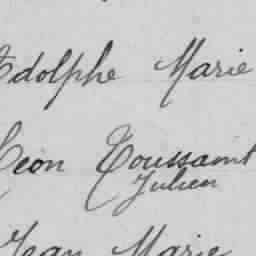 Adolphe Marie
Léon Toussaint
Julien
Jean Marie